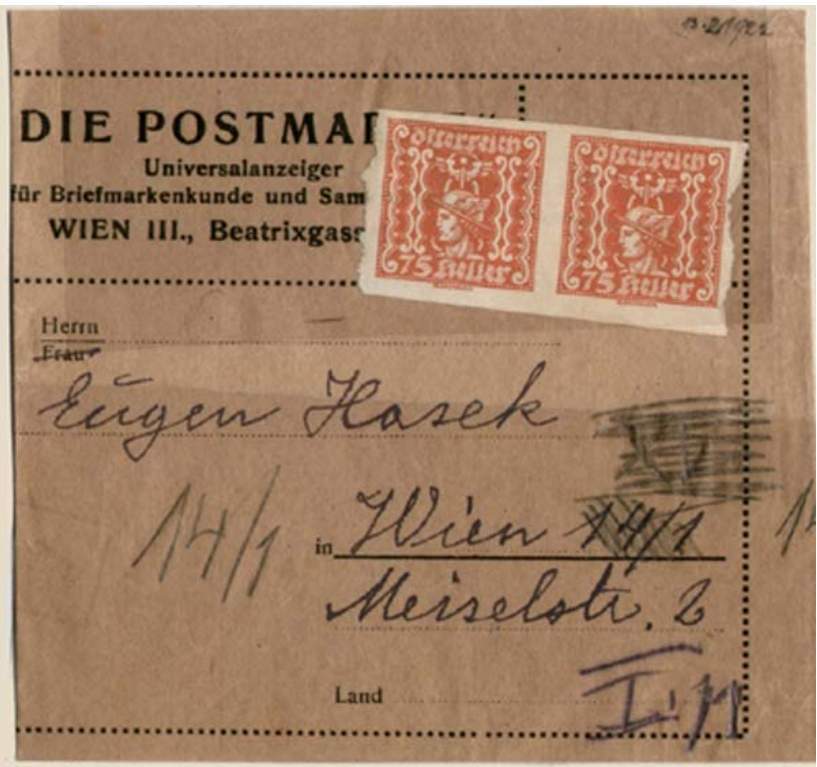 1921
DIE POSTMA
Universalanzeiger
für Briefmarkenkunde und Sam
WIEN III., Beatrixgass
Österreich
75 Heller
Österreich
75 Heller
Herrn
Frau
Eugen Hasek
14/1
in Wien 14/1
14
Meiselstr. 2
Land
I.